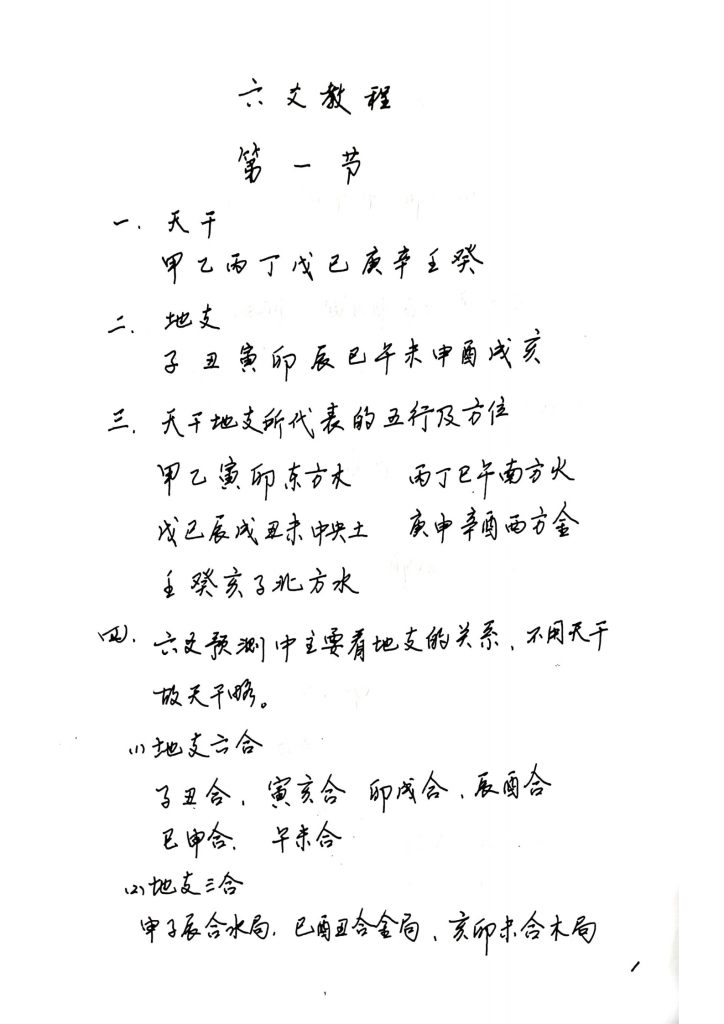 六爻教程
第一节
一. 天干
甲乙丙丁戊己庚辛壬癸
二. 地支
子丑寅卯辰巳午未申酉戌亥
三. 天干地支所代表的五行及方位
甲乙寅卯东方木 丙丁巳午南方火
戊己辰戌丑未中央土 庚申辛酉西方金
壬癸亥子北方水
四. 六爻预测中主要看地支的关系、不用天干
故天干略。
(1)地支六合
子丑合、寅亥合 卯戌合、辰酉合
巳申合、 午未合
(2)地支三合
申子辰合水局、巳酉丑合金局、亥卯未合木局
1